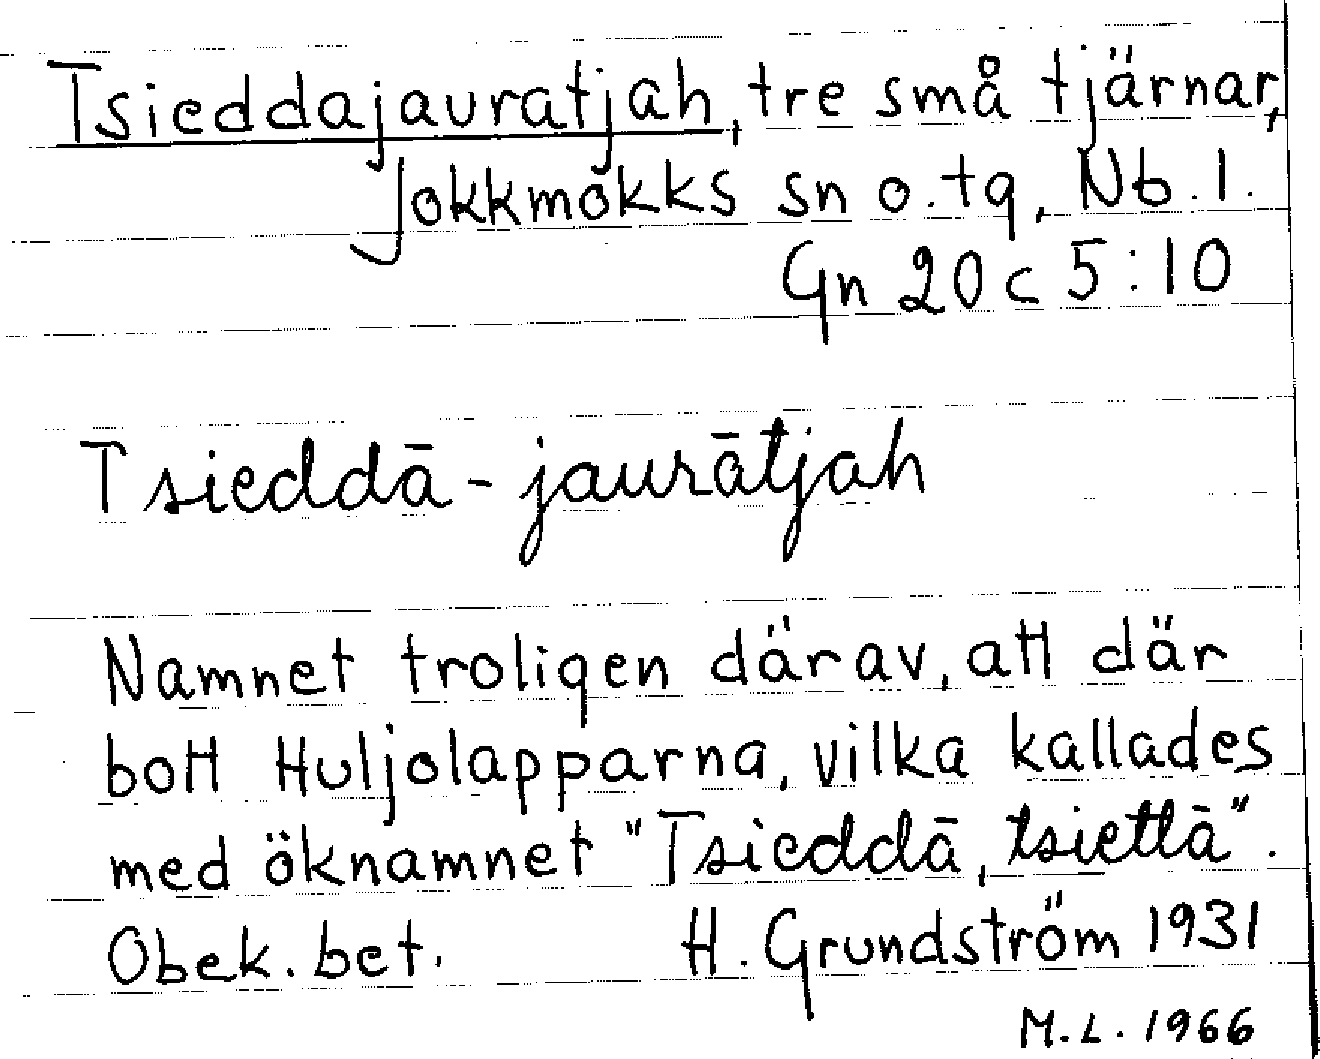 Tsieddajauratjah, tre små tjärnar,
Jokkmokks sn o. tg, Nb. l.
Gn 20 c 5:10
Tsieddā-jaurātjah
Namnet troligen därav, att där
bott Huljolapparna, vilka kallades
med öknamnet "Tsieddā, tsiettā".
Obek. bet. H. Grundström 1931
M.L. 1966